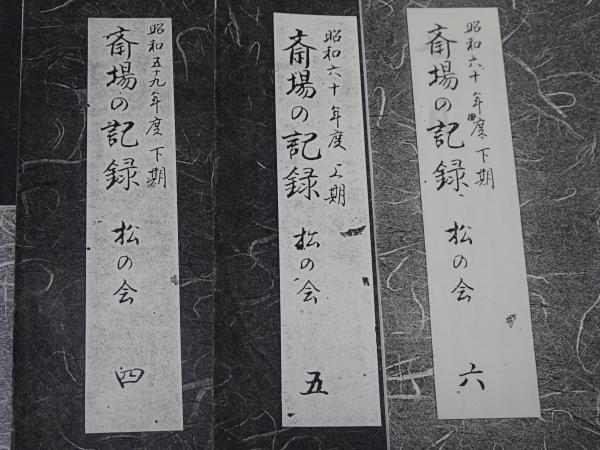 昭和五十九年度 下期
斎場の記録 松の会 四
昭和六十年度 上期
斎場の記録 松の会 五
昭和六十年度 下期
斎場の記録 松の会 六